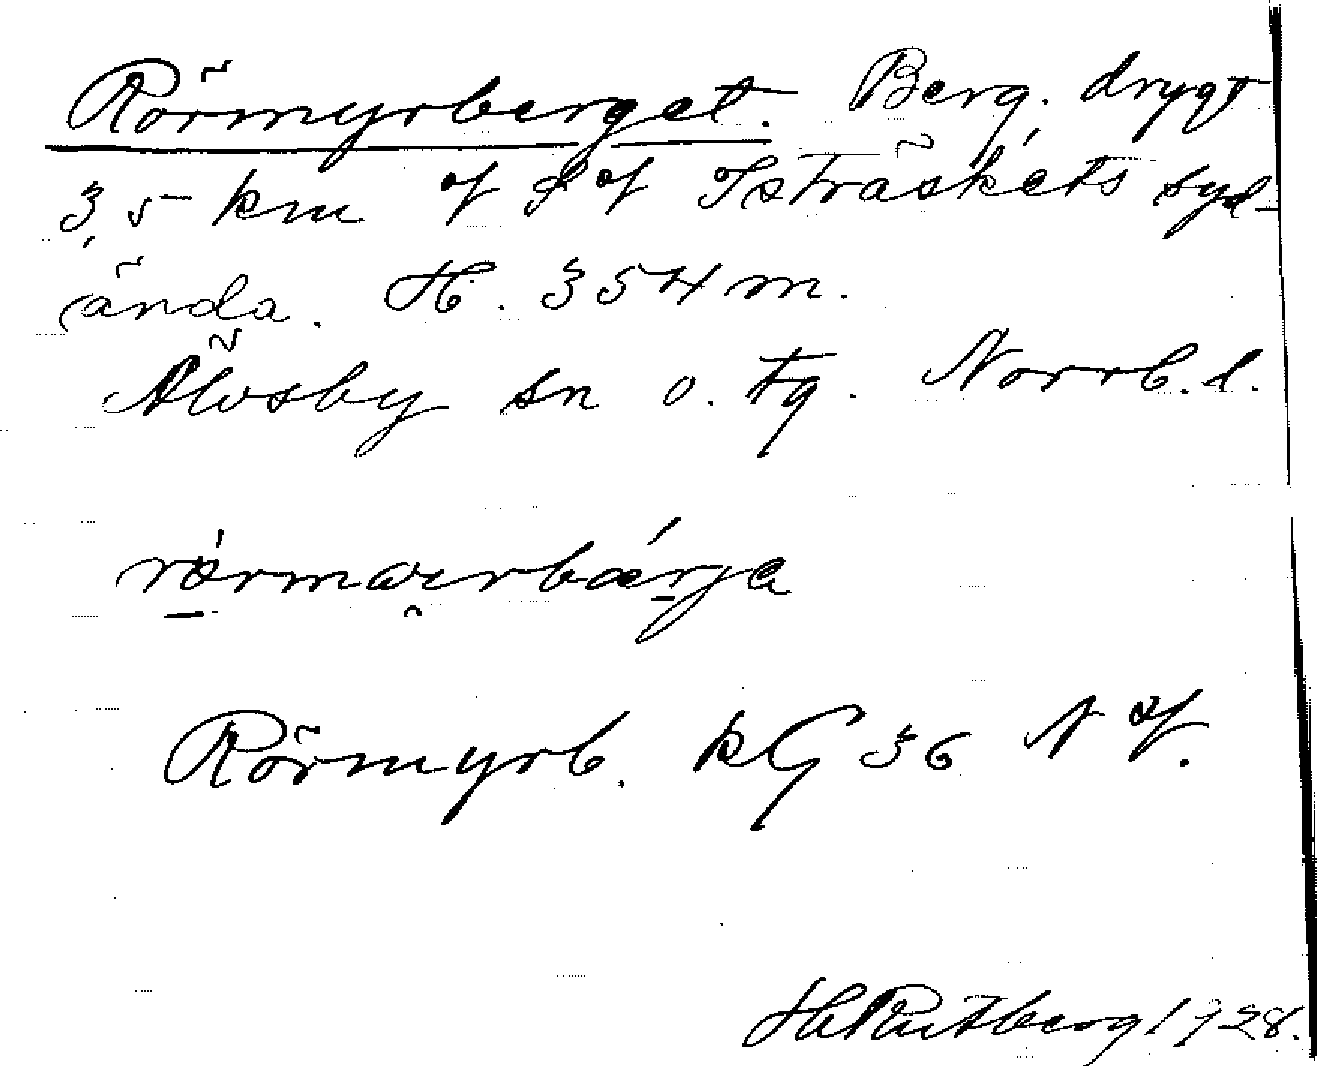 Rörmyrberget. Berg, drygt
3,5 km of S of Isträskets syd-
ända. H. 354 m.
Älvsby sn o. tg. Norrb. l.
Rörmyrb. kG 36 NV.
H Rutberg 1928.